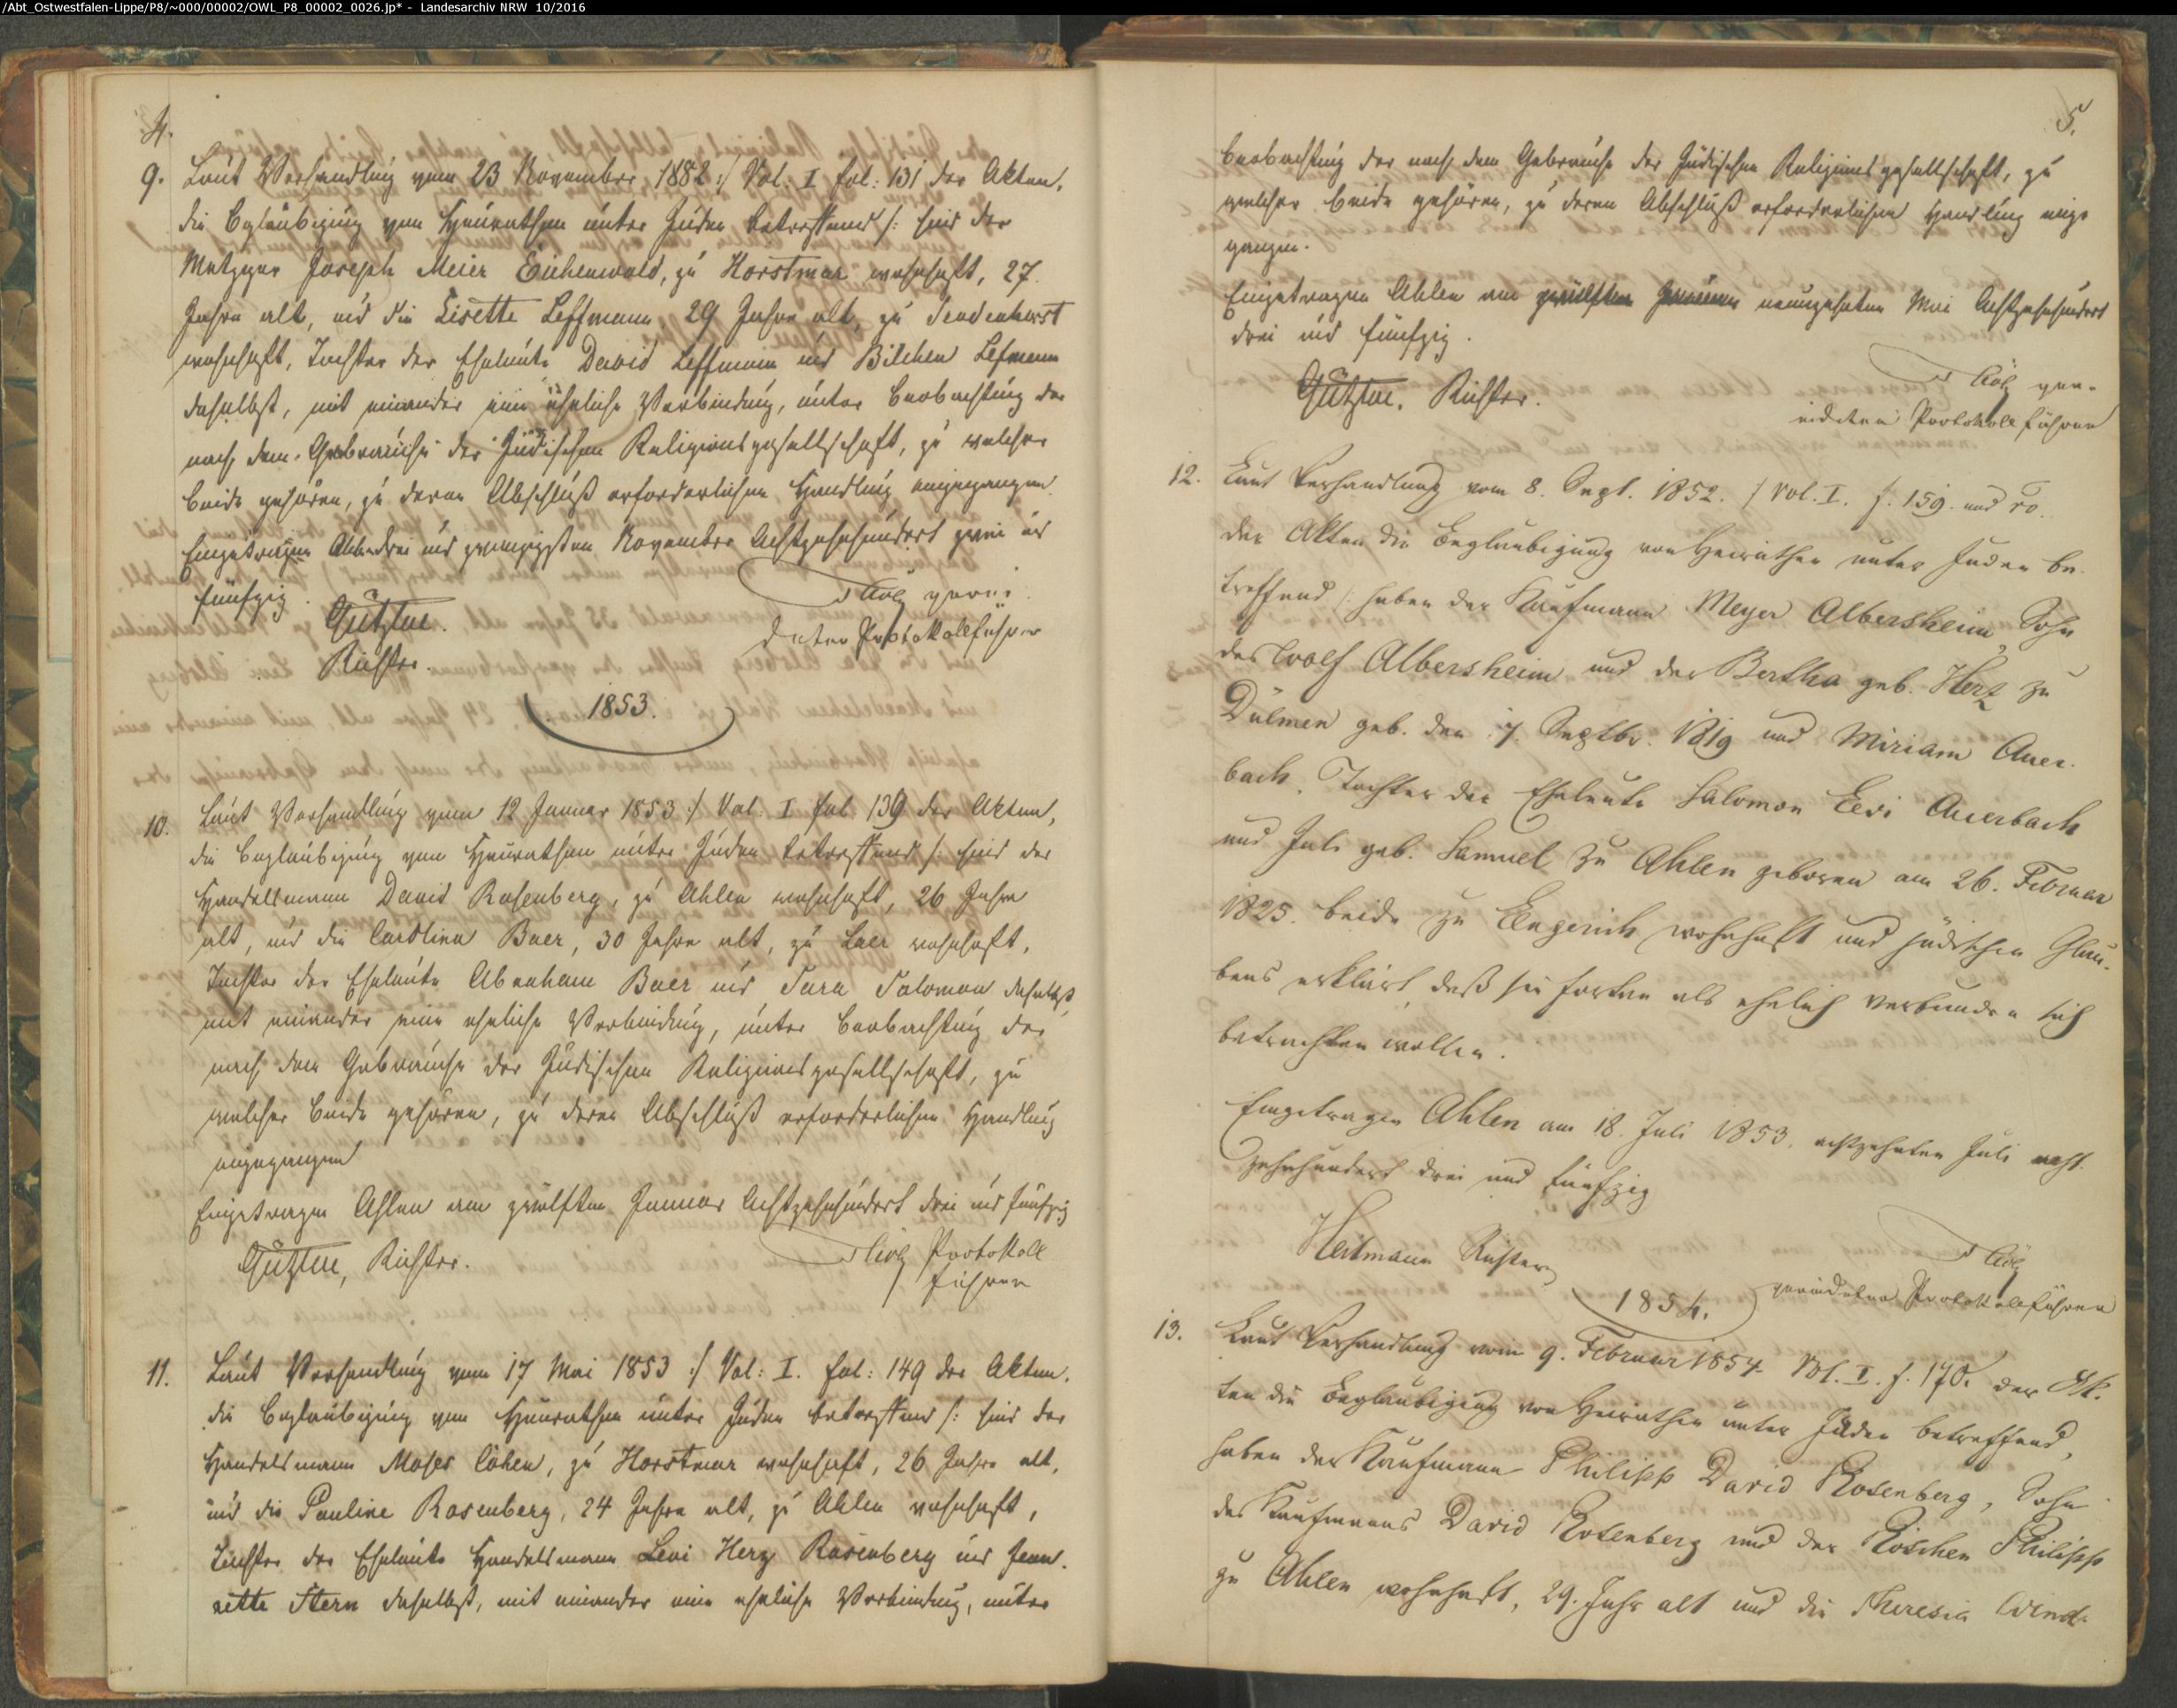 /Abt_Ostwestfalen-Lippe/P8/~000/00002/OWL_P8_00002_0026.jp* - Landesarchiv NRW 10/2016
4.
9. Laut Verhandlung vom 23 November 1852 :/ Vol: I fol: 131 der Akten,
die Beglaubigung von Heurathen unter Juden betreffend /: sind der
Metzger Joseph Meier Eichenwald, zu Horstmar wohnhaft, 27.
Jahre alt, und die Lisette Leffmann, 29 Jahre alt, zu Sendenhorst
wohnhaft, Tochter der Eheleute David Leffmann und Bilchen Lefmann
daselbst, mit einander eine eheliche Verbindung, unter Beobachtung der
nach dem Gebrauche der Jüdischen Religionsgesellschaft, zu welcher
beide gehören, zu deren Abschluß erforderlichen Handlung eingegangen.
Eingetragen Ahlen drei und zwanzigsten November Achtzehnhundert zwei und
fünfzig.
Richter.
Protokollführer
1853.
10. Laut Verhandlung vom 12 Januar 1853 :/ Vol: I fol. 139 der Akten,
die Beglaubigung von Heurathen unter Juden betreffend /: sind der
Handelsmann David Rosenberg, zu Ahlen wohnhaft, 26 Jahre
alt, und die Carolina Baer, 30 Jahre alt, zu Laer wohnhaft,
Tochter der Eheleute Abraham Baer und Sara Salomon daselbst,
mit einander eine eheliche Verbindung, unter Beobachtung der
nach dem Gebrauche der Jüdischen Religionsgesellschaft, zu
welcher beide gehören, zu deren Abschluß erforderlichen Handlung
eingegangen
Eingetragen Ahlen am zwölften Januar Achtzehnhundert drei und fünfzig
Richter.
Protokoll
führer
11. Laut Verhandlung vom 17 Mai 1853 :/ Vol: I. fol: 149 der Akten,
die Beglaubigung von Heurathen unter Juden betreffend /: sind der
Handelsmann Moses Cohen, zu Horstmar wohnhaft, 26 Jahre alt,
und die Pauline Rosenberg, 24 Jahre alt, zu Ahlen wohnhaft,
Tochter der Eheleute Handelsmann Levi Herz Rosenberg und Jean-
nette Stern daselbst, mit einander eine eheliche Verbindung, unter
5.
Beobachtung der nach dem Gebrauche der Jüdischen Religionsgesellschaft, zu
welcher beide gehören, zu deren Abschluß erforderlichen Handlung einge
gangen.
Eingetragen Ahlen am neunzehnten Mai Achtzehnhundert
drei und fünfzig.
Richter.
Protokollführer
12. Laut Verhandlung vom 8. Sept. 1852. / Vol. I. f. 159. und
der Akten die Beglaubigung von Heirathen unter Juden be-
treffend /: haben der Kaufmann Meyer Albersheim, Sohn
des Wolf Albersheim und der Bertha geb. Herz zu
Dülmen geb. den 7. Septbr. 1819 und Miriam Auer-
bach, Tochter der Eheleute Salomon Levi Auerbach
und Juli geb. Samuel zu Ahlen geboren am 26. Februar
1825. beide zu Lengerich wohnhaft und jüdischen Glau-
bens erklärt, daß sie fortan als ehelich verbunden sich
betrachten wollen.
Eingetragen Ahlen am 18. Juli 1853. achtzehnten Juli acht-
zehnhundert drei und fünfzig
Heitmann Richter
vereideter Protokollführer
1854.
13. Laut Verhandlung vom 9. Februar 1854 Vol. I. f. 170. der Ak-
ten die Beglaubigung von Heirathen unter Juden betreffend,
haben der Kaufmann Philipp David Rosenberg, Sohn
des Kaufmanns David Rosenberg und der Röschen Philipp
zu Ahlen wohnhaft, 29. Jahr alt und die Theresia Wend-